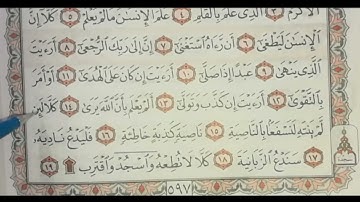 ٱلْأَكْرَمُ ٣ ٱلَّذِى عَلَّمَ بِٱلْقَلَمِ ٤ عَلَّمَ ٱلْإِنسَٰنَ مَا لَمْ يَعْلَمْ ٥ كَلَّآ إِنَّ
ٱلْإِنسَٰنَ لَيَطْغَىٰٓ ٦ أَن رَّءَاهُ ٱسْتَغْنَىٰٓ ٧ إِنَّ إِلَىٰ رَبِّكَ ٱلرُّجْعَىٰٓ ٨ أَرَءَيْتَ
ٱلَّذِى يَنْهَىٰ ٩ عَبْدًا إِذَا صَلَّىٰٓ ١٠ أَرَءَيْتَ إِن كَانَ عَلَى ٱلْهُدَىٰٓ ١١ أَوْ أَمَرَ
بِٱلتَّقْوَىٰٓ ١٢ أَرَءَيْتَ إِن كَذَّبَ وَتَوَلَّىٰٓ ١٣ أَلَمْ يَعْلَم بِأَنَّ ٱللَّهَ يَرَىٰ ١٤ كَلَّا لَئِن
لَّمْ يَنتَهِ لَنَسْفَعًۢا بِٱلنَّاصِيَةِ ١٥ نَاصِيَةٍ كَٰذِبَةٍ خَاطِئَةٍ ١٦ فَلْيَدْعُ نَادِيَهُۥ
١٧ سَنَدْعُ ٱلزَّبَانِيَةَ ١٨ كَلَّا لَا تُطِعْهُ وَٱسْجُدْ وَٱقْتَرِب ۩ ١٩
٥٩٧